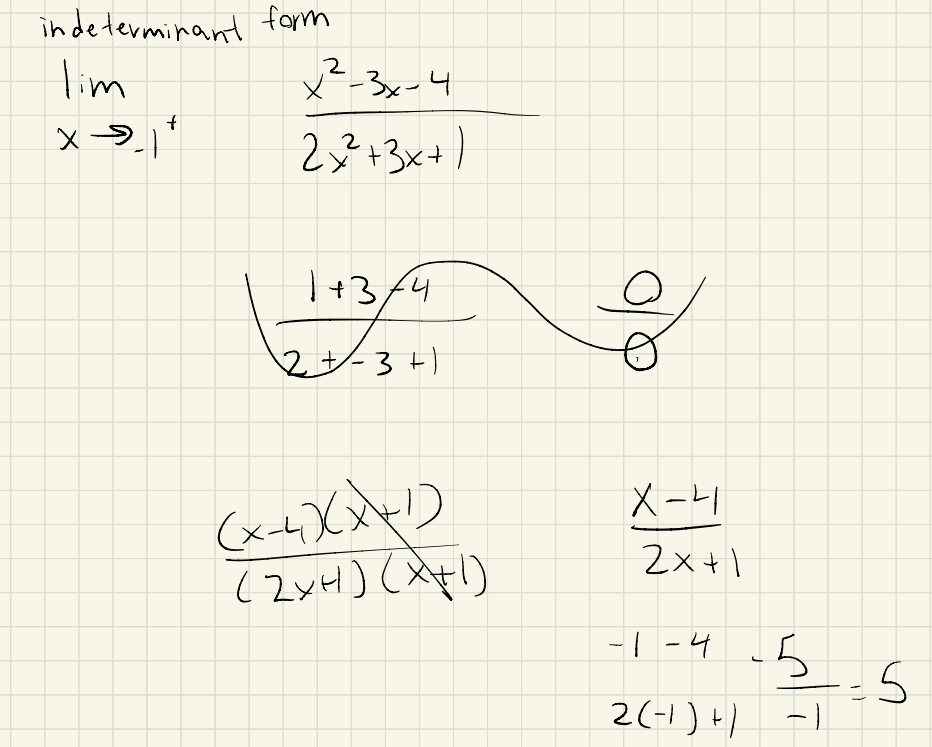 indeterminant form
lim x→-1⁺ (x² - 3x - 4)/(2x² + 3x + 1)
(1 + 3 - 4)/(2 + - 3 + 1) 0/0
((x-4)(x+1))/((2x+1)(x+1)) (x - 4)/(2x + 1)
(-1 - 4)/(2(-1) + 1) -5/-1 = 5